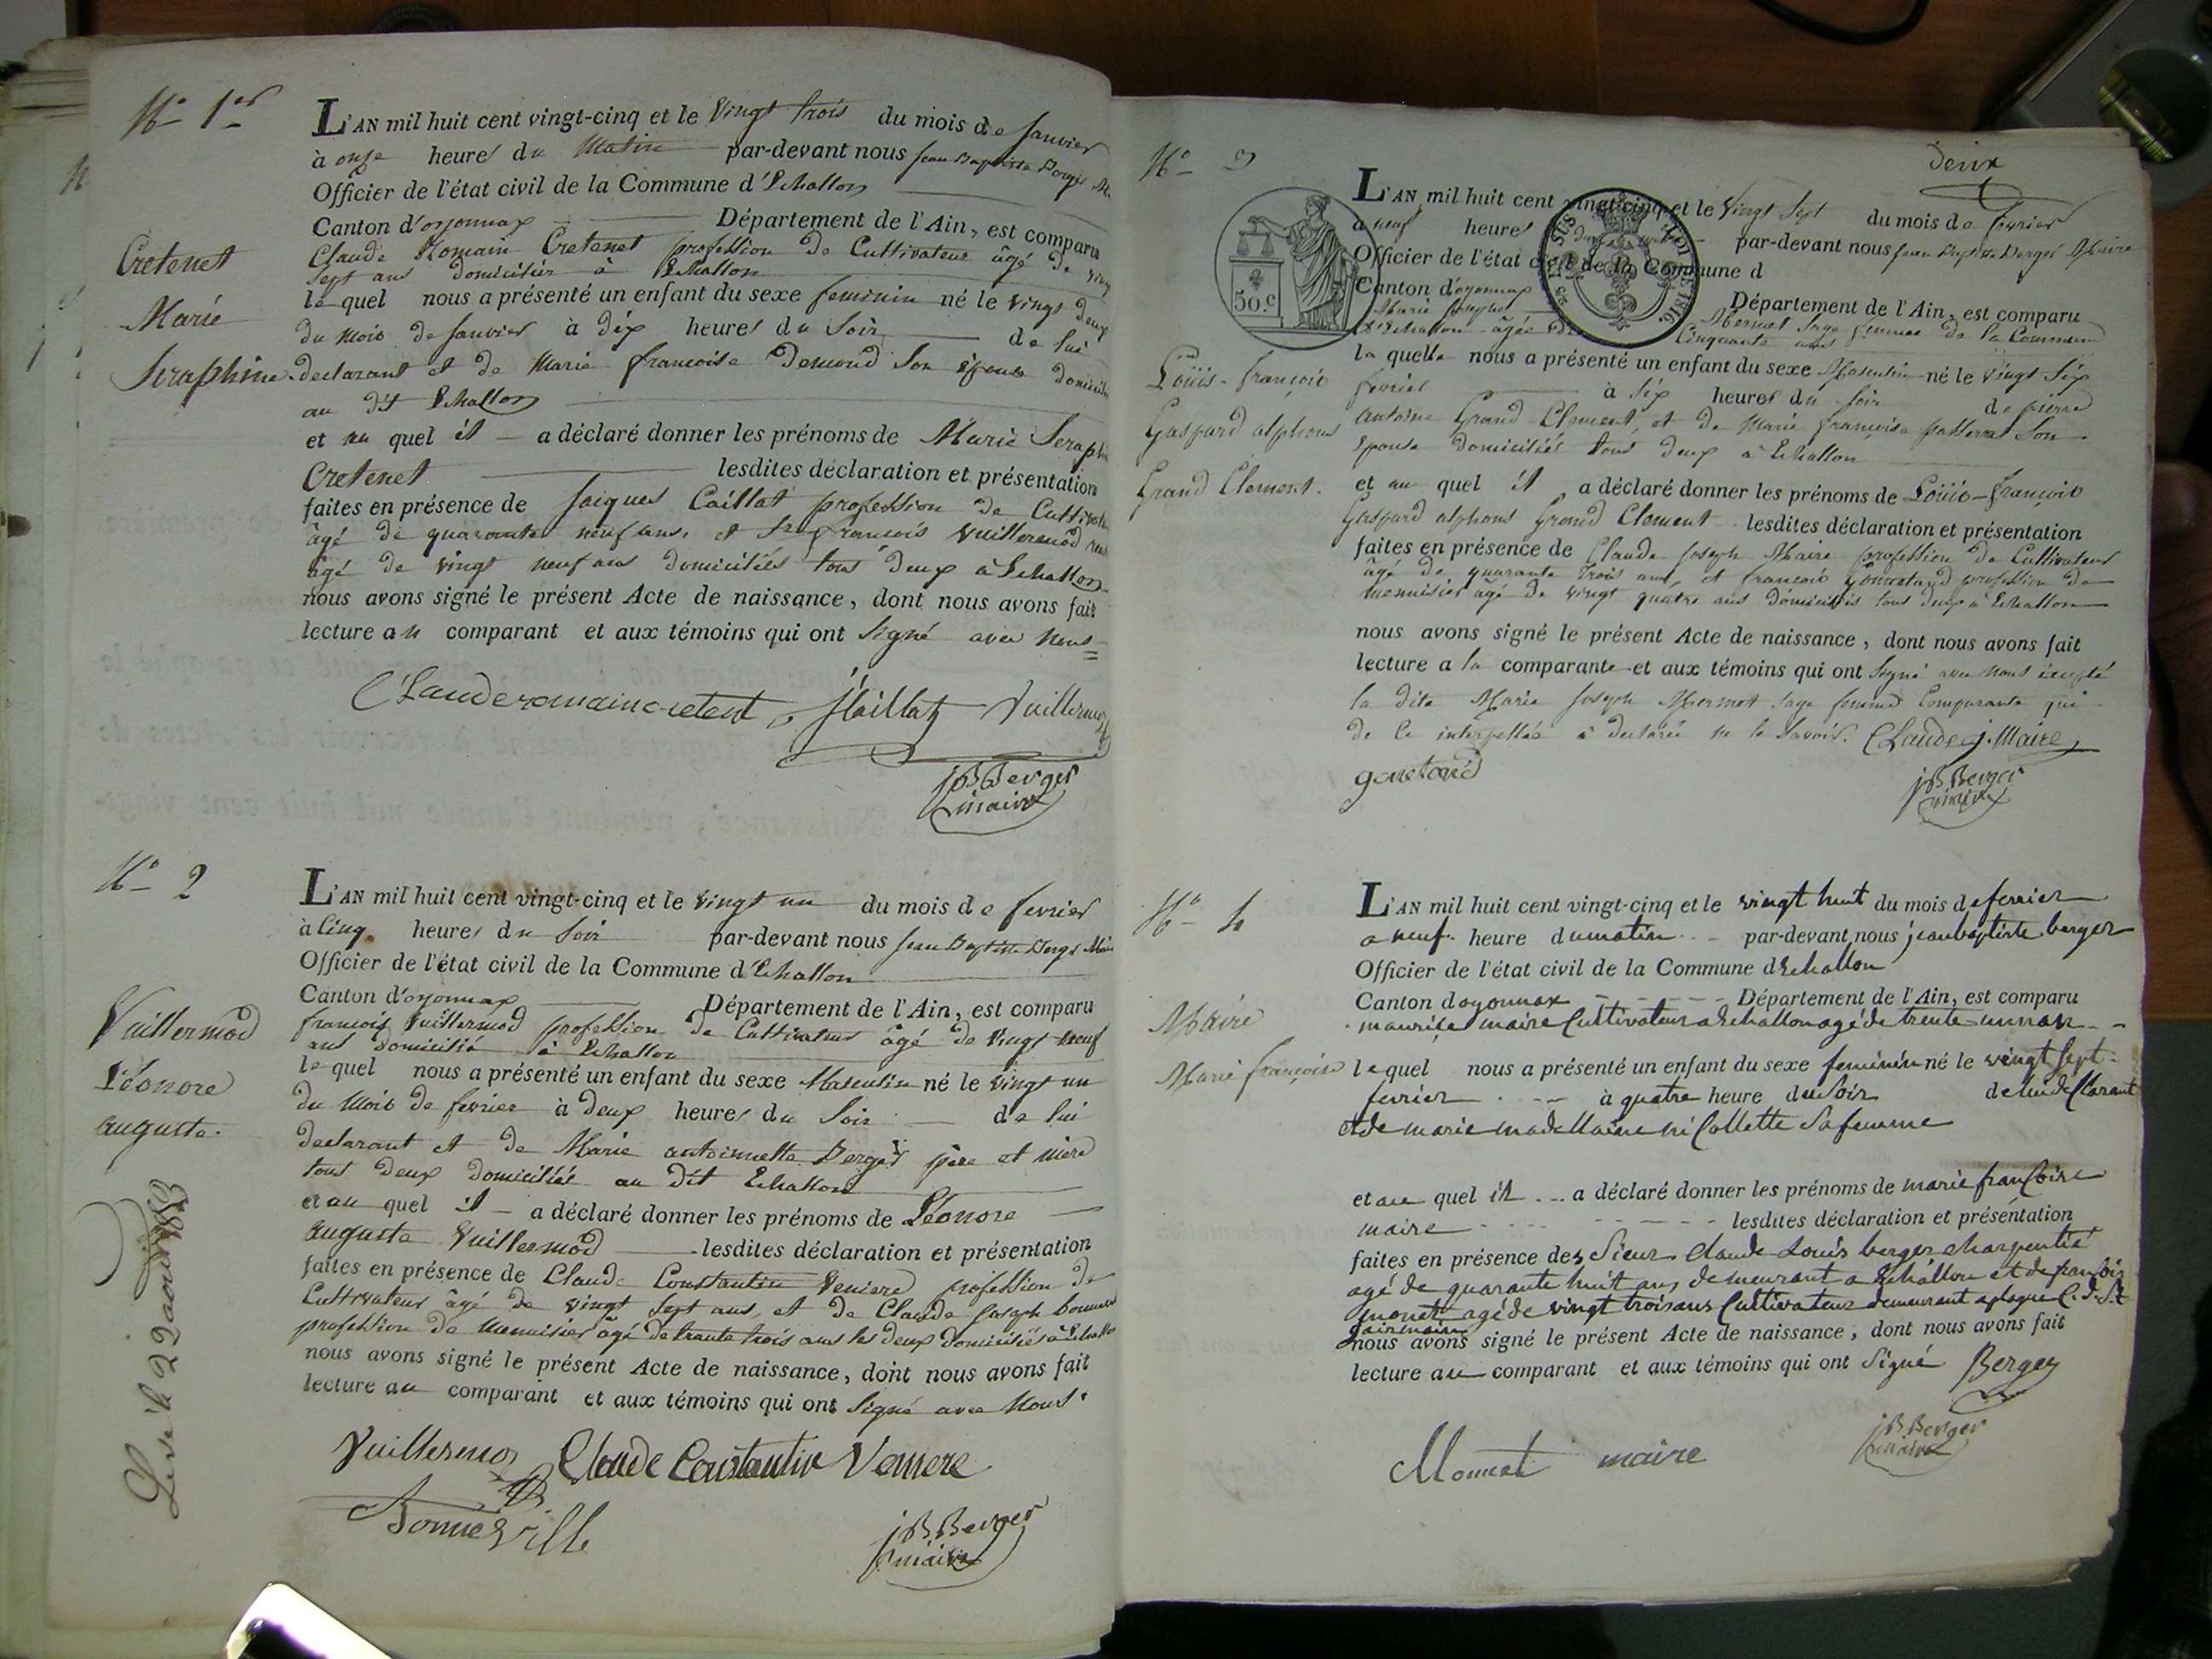 No 1er
L'AN mil huit cent vingt-cinq et le Vingt trois du mois de Janvier
à onze heures du Matin par-devant nous Jean Baptiste Berger
Officier de l'état civil de la Commune d'Echallon
Canton d'oyonnax Département de l'Ain, est comparu
Claude Romain Cretenet profession de Cultivateur âgé de vingt
Sept ans domicilier à Echallon
lequel nous a présenté un enfant du sexe feminin né le vingt deux
du mois de Janvier à dix heures du Soir de lui
declarant et de Marie francoise Demond Son épouse
au dit Echallon
et au quel il a déclaré donner les prénoms de Marie Seraphine
Cretenet lesdites déclaration et présentation
faites en présence de Jacques Caillat profession de
âgé de quarante neuf ans, et françois Vuillermod
âgé de vingt neuf ans domiciliés tous deux à Echallon
nous avons signé le présent Acte de naissance, dont nous avons fait
lecture au comparant et aux témoins qui ont Signé avec nous
Cretenet
Marie
Seraphine
Clauderomaincretent Vuillermoz
JBBerger
maire
No 2
L'AN mil huit cent vingt-cinq et le Vingt un du mois de fevrier
à Cinq heures du Soir par-devant nous Jean Baptiste Berger Maire
Officier de l'état civil de la Commune d'Echallon
Canton d'oyonnax Département de l'Ain, est comparu
françois Vuillermod profession de Cultivateur âgé de Vingt neuf
ans domicilié à Echallon
lequel nous a présenté un enfant du sexe Masculin né le vingt un
du Mois de fevrier à deux heures du Soir de lui
declarant et de Marie antoinette Berger père et mère
tous deux domiciliés au dit Echallon
et au quel il a déclaré donner les prénoms de Léonore
auguste Vuillermod lesdites déclaration et présentation
faites en présence de Claude Constantin profession de
Cultivateur âgé de vingt Sept ans, et de Claude Joseph
profession de Menuisier âgé de trente trois ans les deux domiciliés à Echallon
nous avons signé le présent Acte de naissance, dont nous avons fait
lecture au comparant et aux témoins qui ont Signé avec Nous
Vuillermod
Léonore
auguste
Claude Constantin
Bonneville
JBBerger
maire
deux
No 3
50.c
L'AN mil huit cent vingt-cinq et le Vingt Sept du mois de fevrier
à neuf heures par-devant nous Jean Baptiste Berger Maire
Officier de l'état civil de la Commune d
Canton d'oyonnax Département de l'Ain, est comparu
Marie Joseph Mermet Sage femme de la Commune
d'Echallon âgée de Cinquante ans
laquelle nous a présenté un enfant du sexe Masculin né le Vingt Six
fevrier à Six heures du Soir de pierre
antoine Grand Clement, et de Marie françoise passerat Son
epouse domiciliés tous deux à Echallon
et au quel il a déclaré donner les prénoms de Loüis-françois
Gaspard alphons Grand Clement lesdites déclaration et présentation
faites en présence de Claude Joseph Maire profession de Cultivateur
âgé de quarante trois ans, et francois profession de
menuisier âgé de vingt quatre ans domiciliés tous deux à Echallon
nous avons signé le présent Acte de naissance, dont nous avons fait
lecture a la comparante et aux témoins qui ont Signé avec nous excepté
la dite Marie Joseph Mermet Sage femme Comparante qui
de ce interpellée à declarée ne le Savoir. Claude j. Maire
Loüis-françois
Gaspard alphons
Grand Clement.
JBBerger
maire
No 4
L'AN mil huit cent vingt-cinq et le vingt huit du mois de ferrier
a neuf heure dumatin par-devant nous jeanbaptiste berger
Officier de l'état civil de la Commune dEchallon
Canton doyonnax Département de l'Ain, est comparu
maurice maire Cultivateur a Echallon agé de trente un
lequel nous a présenté un enfant du sexe feminin né le vingt Sept
fevrier à quatre heure du Soir de lui declarant
et de marie madellaine ni Collette Safemme
et au quel il a déclaré donner les prénoms de marie francoise
maire lesdites déclaration et présentation
faites en présence des Sieur Claude Louis berger charpentié
agé de quarante huit ans demeurant a Echallon et de francois
monet agé de vingt trois ans Cultivateur demeurant
nous avons signé le présent Acte de naissance, dont nous avons fait
lecture au comparant et aux témoins qui ont Signé Berger
Maire
Marie françoise
Monnet maire
JBBerger
maire